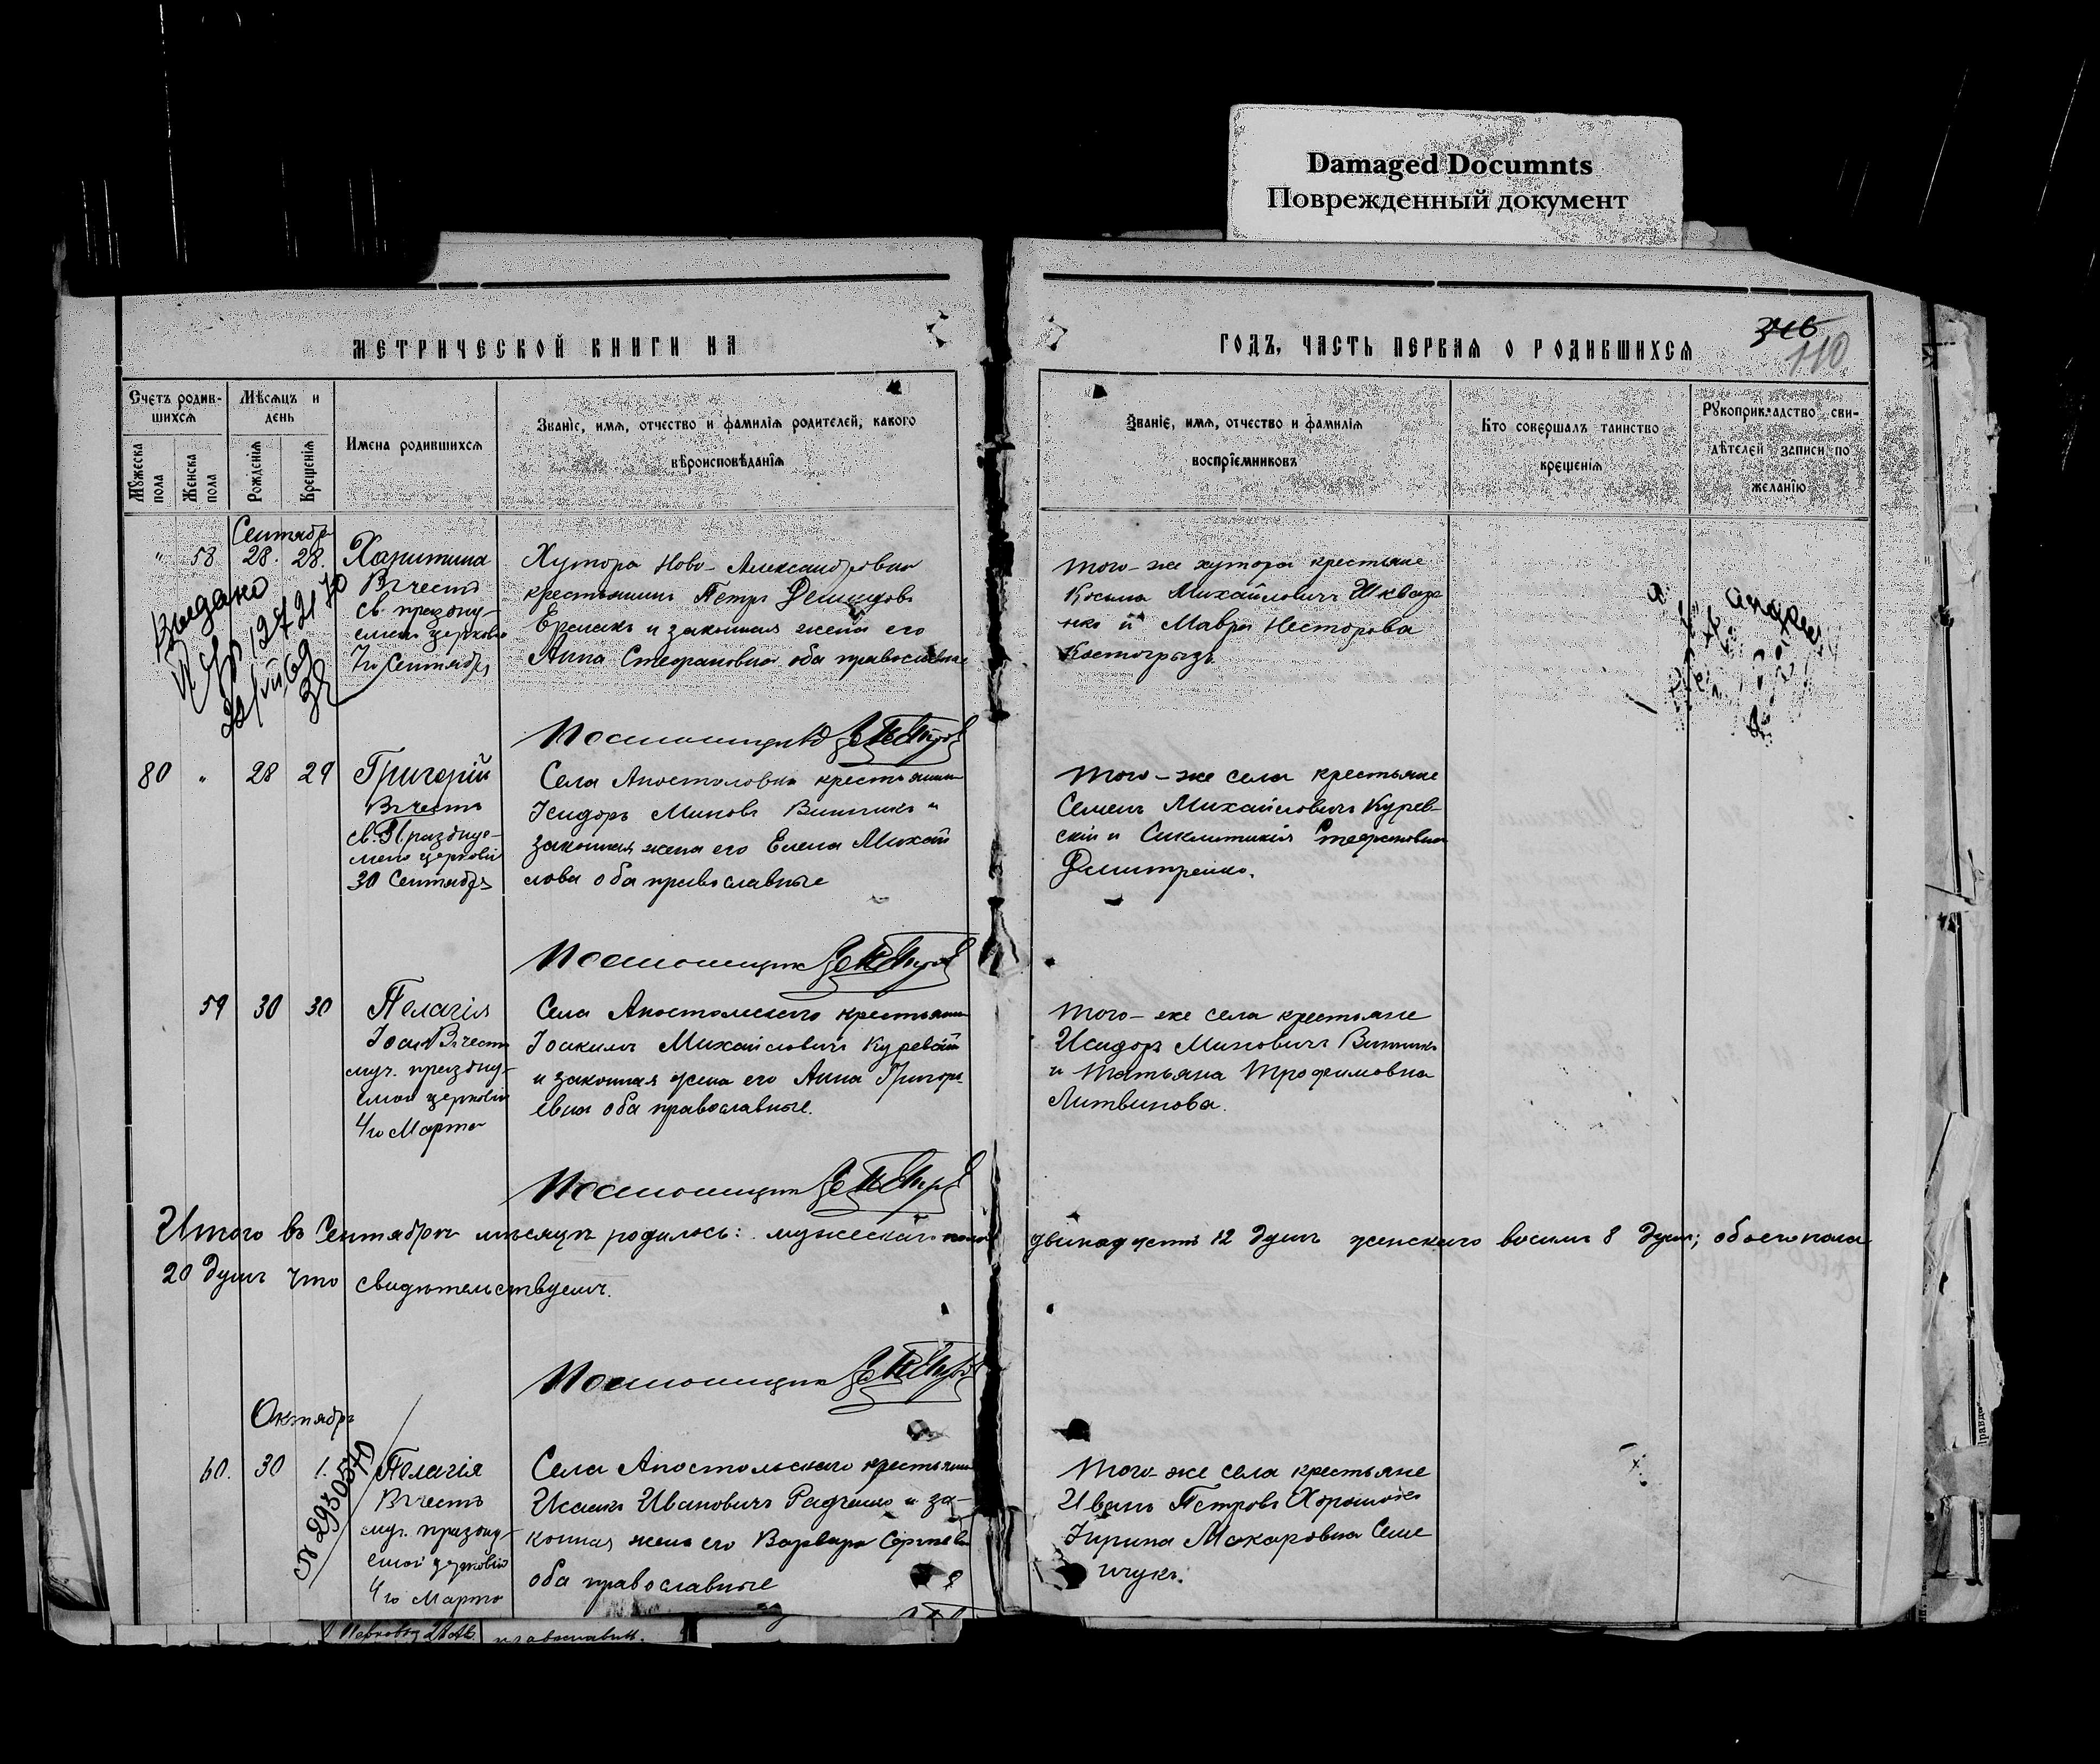 Damaged Documnts
Поврежденный документ
МЕТРИЧЕСКОЙ КНИГИ НА
ГОДЪ, ЧАСТЬ ПЕРВАЯ О РОДИВШИХСЯ
346
110
Счетъ родив-
шихся
Мѣсяцъ и
день
Мꙋжеска
пола
Женска
пола
Рожденія
Крещенія
Имена родившихся
Званіе, имя, отчество и фамилія родителей, какого
вѣроисповѣданія
Званіе, имя, отчество и фамилія
воспріемниковъ
Кто совершалъ таинство
крещенія
Рꙋкоприкладство сви-
дѣтелей записи по
желанію
Сентябрь
" 58 28. 28. Харитина
Въ честь
св. празdну-
емой церковію
7го Сентября
Хутора Ново-Александровки
крестьянинъ Петръ Демидовъ
Ермакъ и законная жена его
Анна Стефановна оба православные
того-же хутора крестьяне
Косьма Михайловичъ Шквар
нко и Мавра Несторова
Костогрызъ
Выдано
Псаломщикъ
80 " 28 29 Григорій
Въ честь
св. Празdнуе-
маго церковію
30 Сентября
Села Апостоловки крестьянинъ
Исидоръ Миновъ Винникъ и
законная жена его Елена Михай
лова оба православные
того-же села крестьяне
Семенъ Михайловичъ Курев-
скій и Синклитикія Стефановна
Дмитренко.
Псаломщикъ
59 30 30 Пелагія
Въ честь
муч. празdну-
емой церковію
4го Марта
Села Апостольскаго крестьянинъ
Іоакимъ Михайловичъ Куревскій
и законная жена его Анна Григорь
евна оба православные.
того-же села крестьяне
Исидоръ Миновичъ Винникъ
и Татьяна Трофимовна
Литвинова.
Псаломщикъ
Итого въ Сентябрѣ мѣсяцѣ родилось: мужескаго пола двѣнадцать 12 душъ женскаго восемь 8 душъ; обоего пола
20 душъ что свидѣтельствуемъ.
Псаломщикъ
Октябрь
60. 30 1. Пелагія
Въ честь
муч. празdну-
емой церковію
4го Марта
№ 2930570
Села Апостольскаго крестьянинъ
Исаакъ Ивановичъ Радченко и за-
конная жена его Варвара Сергѣева
оба православные
того-же села крестьяне
Иванъ Петровъ Хорошокъ
Ирина Макаровна Семе
нчукъ.
православн.